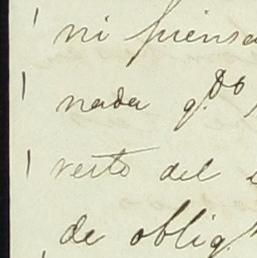 ni piensa
nada q.do
resto del
de oblig.